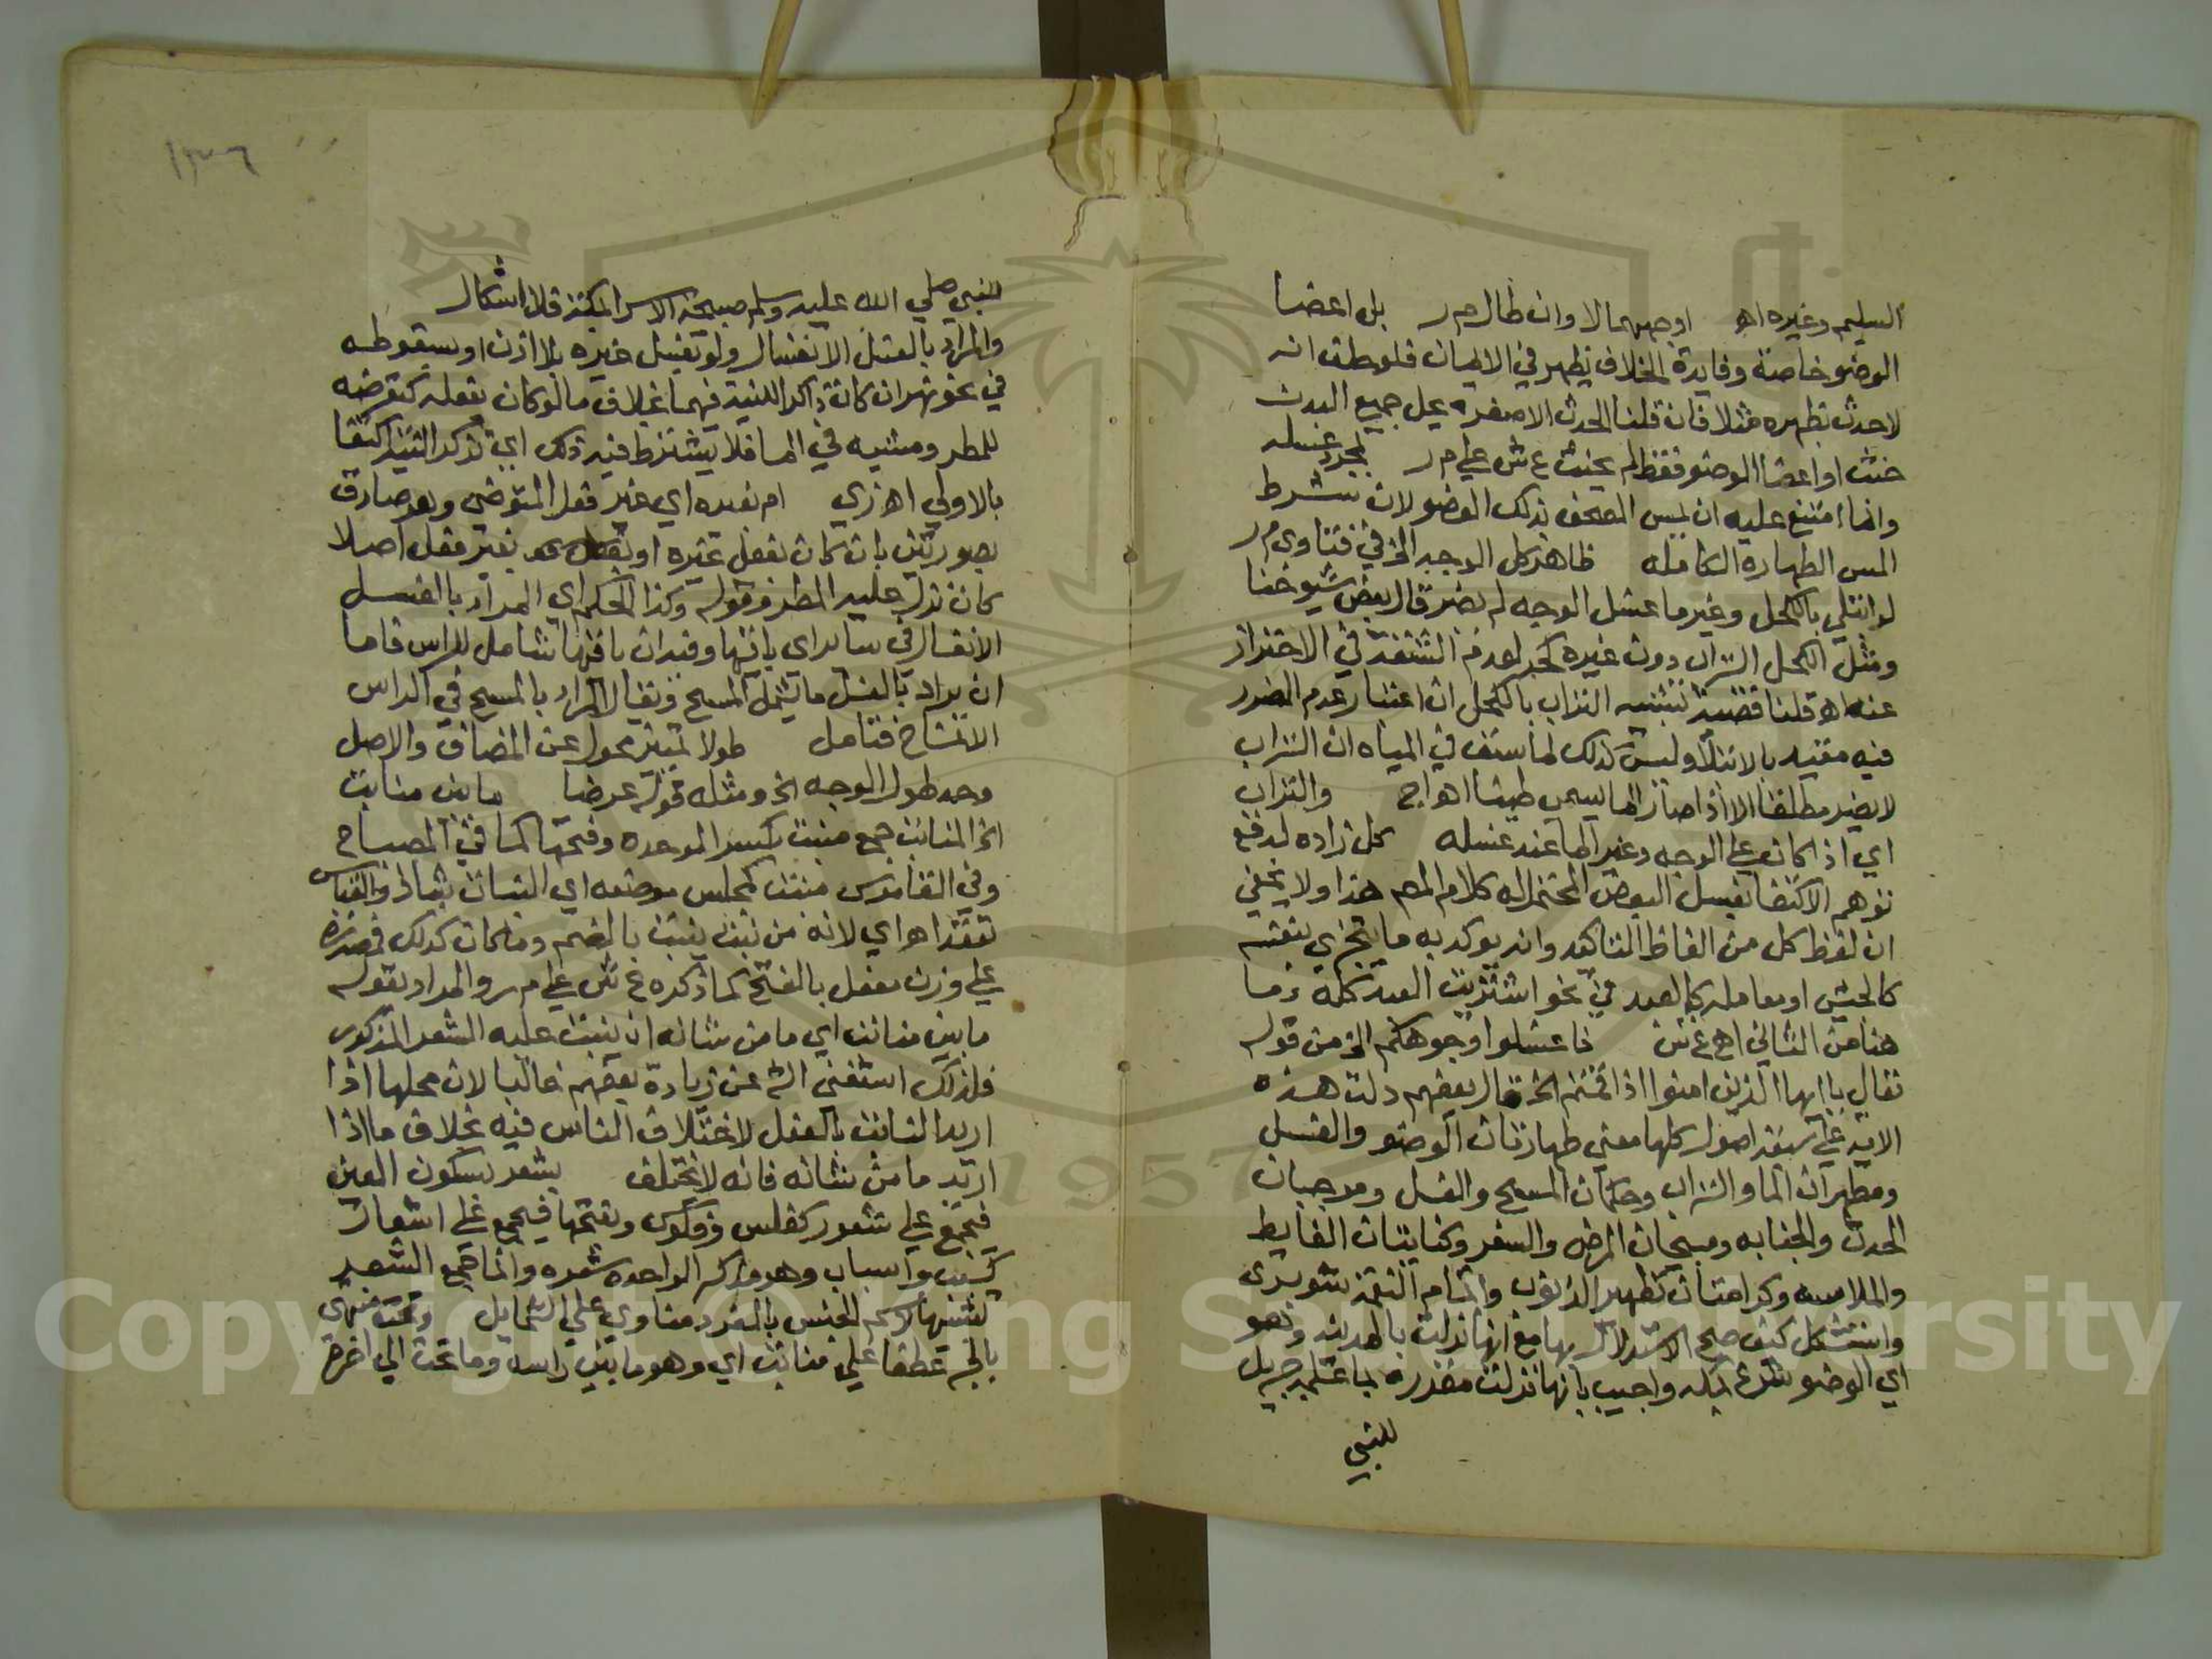 السليم وغيره اه اوجههما لا وان طال م ر بل اعضا
الوضو خاصة وفايدة الخلاف تظهر في الايمان فلو حلف انه
لا حدث بظهره مثلا فان قلنا الحدث الاصغر يحل جميع البدن
حنث او اعضا الوضو فقط لم يحنث ع ش علي م ر لمجرد غسله
وانما امتنع عليه ان يمس المصحف بذلك العضو لان شرط
المس الطهارة الكاملة ظاهر كل الوجه الخ في فتاوي م ر
لو ابتلي بالكحل وغير ما غسل الوجه لم يضر قال بعض شيوخنا
ومثل الكحل التراب دون غيره كحبر لعدم المشقة في الاحتراز
عنه اه قلنا قضية تشبيه التراب بالكحل ان اعتبار عدم الضرر
فيه مقيد بالابتلا وليس كذلك لما سبق في المياه ان التراب
لا يضر مطلقا الا اذا صار الما يسمي طينا اه اج والتراب
اي اذا كان علي الوجه وغير الما عند غسله كل زاده لدفع
توهم الاكتفا بغسل البعض المحتمل له كلام المص هذا ولا يخفي
ان لفظ كل من الفاظ التاكيد وانه يوكد به ما يتجزي بنفسه
كالجيش او بعامله كالعبد في نحو اشتريت العبد كله وما
هنا من الثاني اه ع ش فاغسلوا وجوهكم الخ من قوله
تعالي ياايها الذين امنوا اذا قمتم الخ قال بعضهم دلت هذه
الاية علي سبعة اصول كلها مثني طهارتان الوضو والغسل
ومطهران الما والتراب وحكمان المسح والغسل وموجبان
الحدث والجنابه ومبيحان المرض والسفر وكنايتان الغايط
والملامسه وكرامتان تطهير الذنوب واتمام النعمة شوبري
واستشكل كيف صح الاستدلال بها مع انها نزلت بالمدينة وهو
اي الوضو شرع بمكه واجيب بانها نزلت مقررة لما علمه جبريل
للنبي
١٣٦
للنبي صلي الله عليه وسلم صبيحة الاسرا بمكة فلا اشكال
والمراد بالغسل الانغسال ولو بغسل غيره بلا اذن او بسقوطه
في نحو نهر ان كان ذاكرا للنية فيهما بخلاف ما لو كان بفعله كتعرضه
للمطر ومشيه في الما فلا يشترط فيه ذلك اي تذكر النية اكتفا
بالاولي اه زي ام بغيره اي غير فعل المتوضي وهو صادق
بصورتين بان كان بفعل غيره او بغير فعل اصلا
كان نزل عليه المطر وقوله وكذا الحكم اي المراد بالغسل
الانغسال في ساير اي باقيها وفيه ان باقيها شامل للراس فاما
ان يراد بالغسل ما يشمل المسح ويقال المراد بالمسح في الراس
الانمساح فتامل طولا تمييز محول عن المضاف والاصل
وحد طول الوجه الخ ومثله قوله عرضا ما بين منابت
الخ المنابت جمع منبت بكسر الموحده وفتحها كما في المصباح
وفي القاموس منبت كمجلس موضعه اي النبات شاذ والقياس
كمقعد اه اي لانه من نبت ينبت بالضم وما كان كذلك فمصدره
علي وزن مفعل بالفتح كما ذكره ع ش علي م ر والمراد بقوله
ما بين منابت اي ما من شانه ان ينبت عليه الشعر المذكور
فلذلك استغني الش عن زيادة بعضهم غالبا لان محلها اذا
اريد النابت بالفعل لاختلاف الناس فيه بخلاف ما اذا
اريد ما من شانه فانه لا يختلف بشعر بسكون العين
فيجمع علي شعور كفلس وفلوس وبفتحها فيجمع علي اشعار
كسبب واسباب وهو مذكر الواحدة شعره وانما جمع الشعر
تشبيها لاسم الجنس بالمفرد مناوي علي الشمايل وتحت منتهي
بالجر عطفا علي منابت اي وهو ما بين راسه وما تحت الي اخره